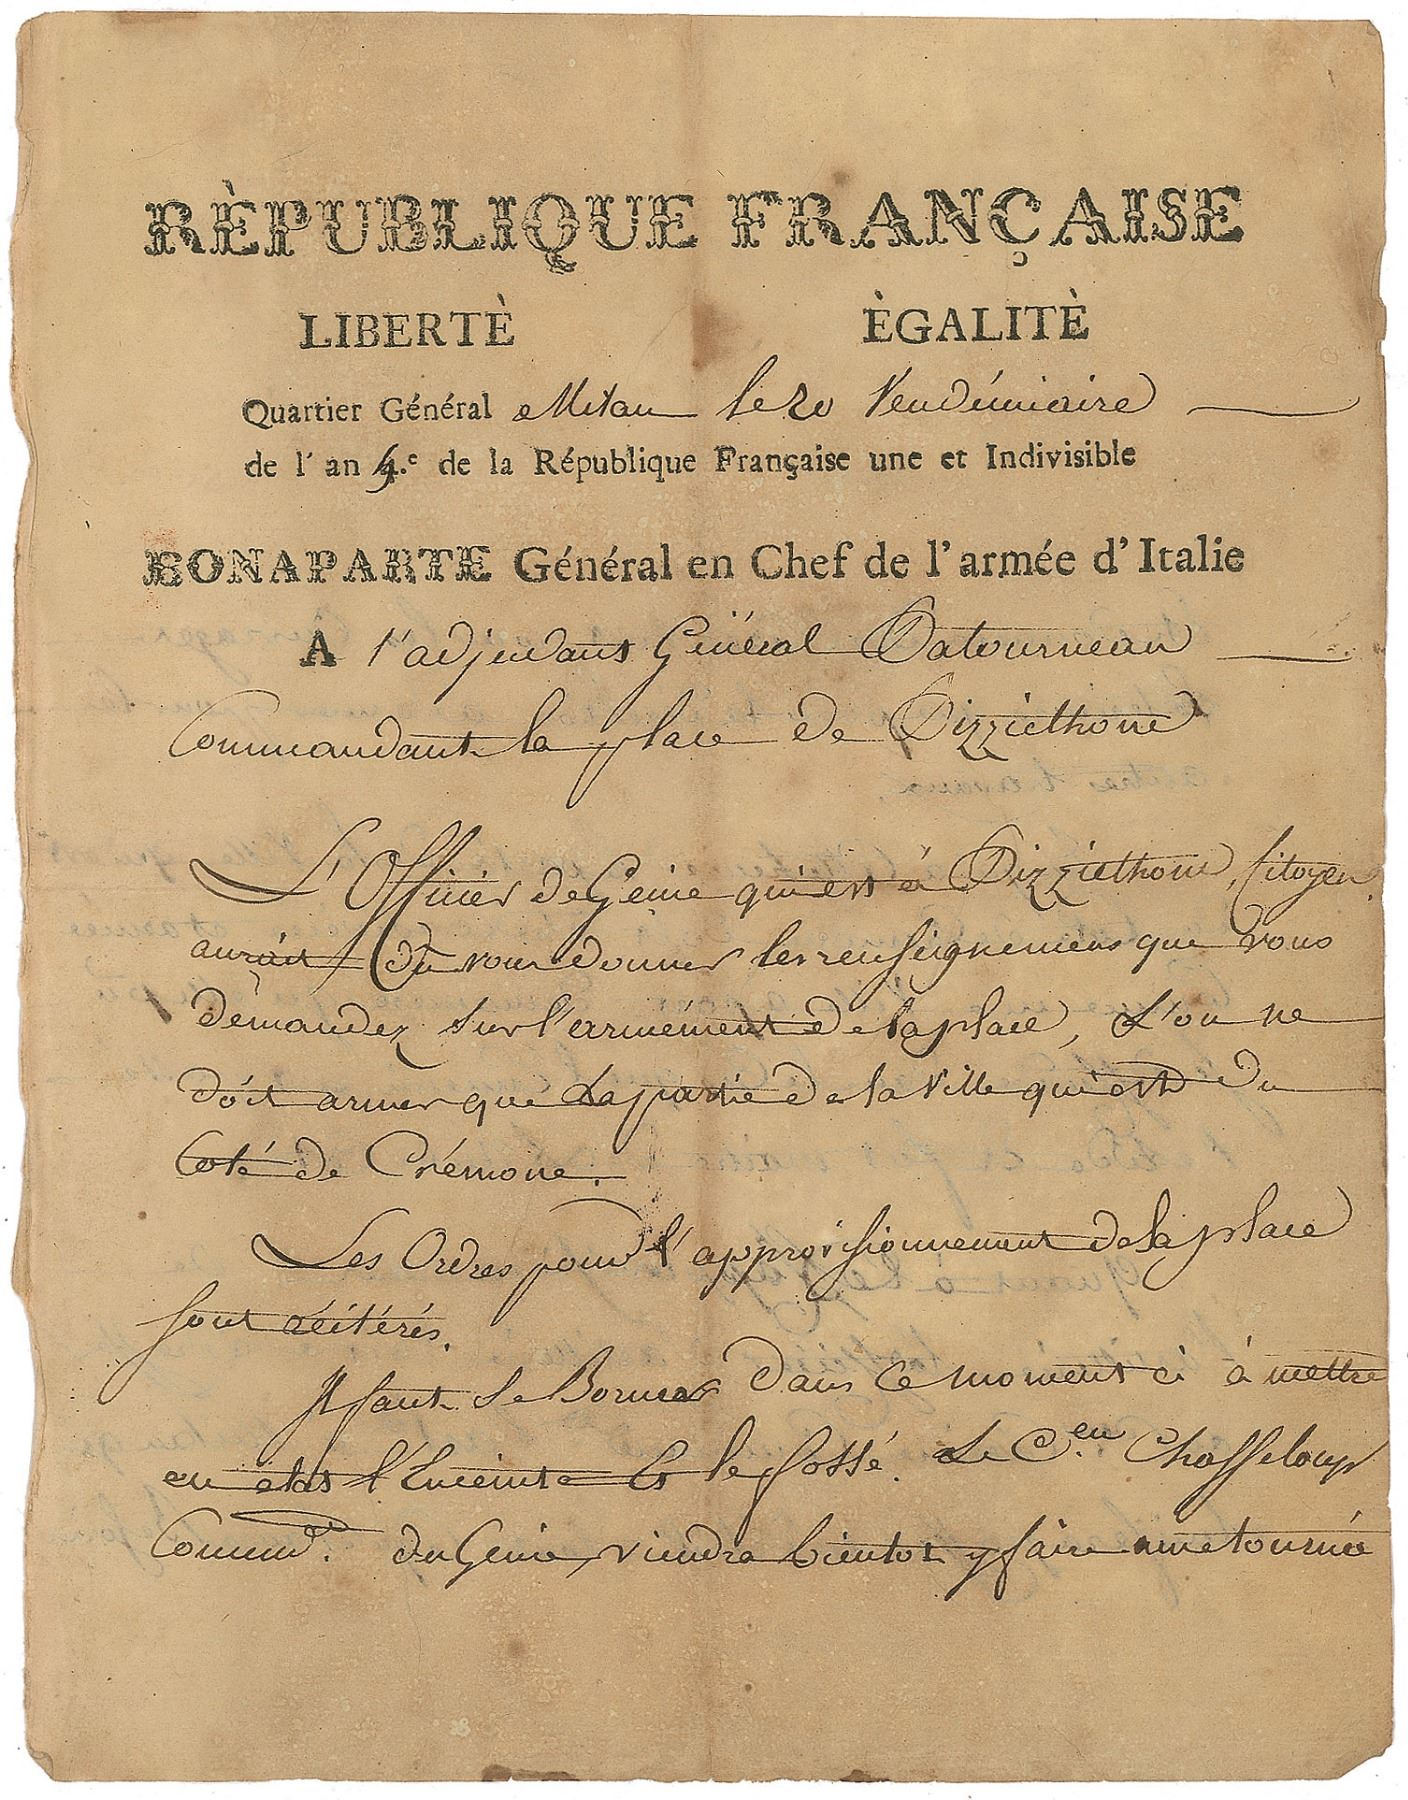 RÈPUBLIQUE FRANÇAISE
LIBERTÈ ÈGALITÈ
Quartier Général Milan le 20 Vendémiaire
de l'an 5.e de la République Française une et Indivisible
BONAPARTE Général en Chef de l'armée d'Italie
A l'adjudant Général Latourneau
Commandant la place de Pizziethone
L'Officier de Genie qui est à Pizziethone, Citoyen
aurait dû vous donner les renseignemens que vous
demandez sur l'armement de la place, L'on ne
doit armer que la partie de la Ville qui est du
Coté de Crémone.
Les Ordres pour l'approvisionnement de la place
sont réitérés.
Il faut se Borner dans ce moment ci à mettre
en etat l'Enceinte et le fossé. Le C.en Chasseloup
Command.t du Genie, viendra bientot y faire une tournée